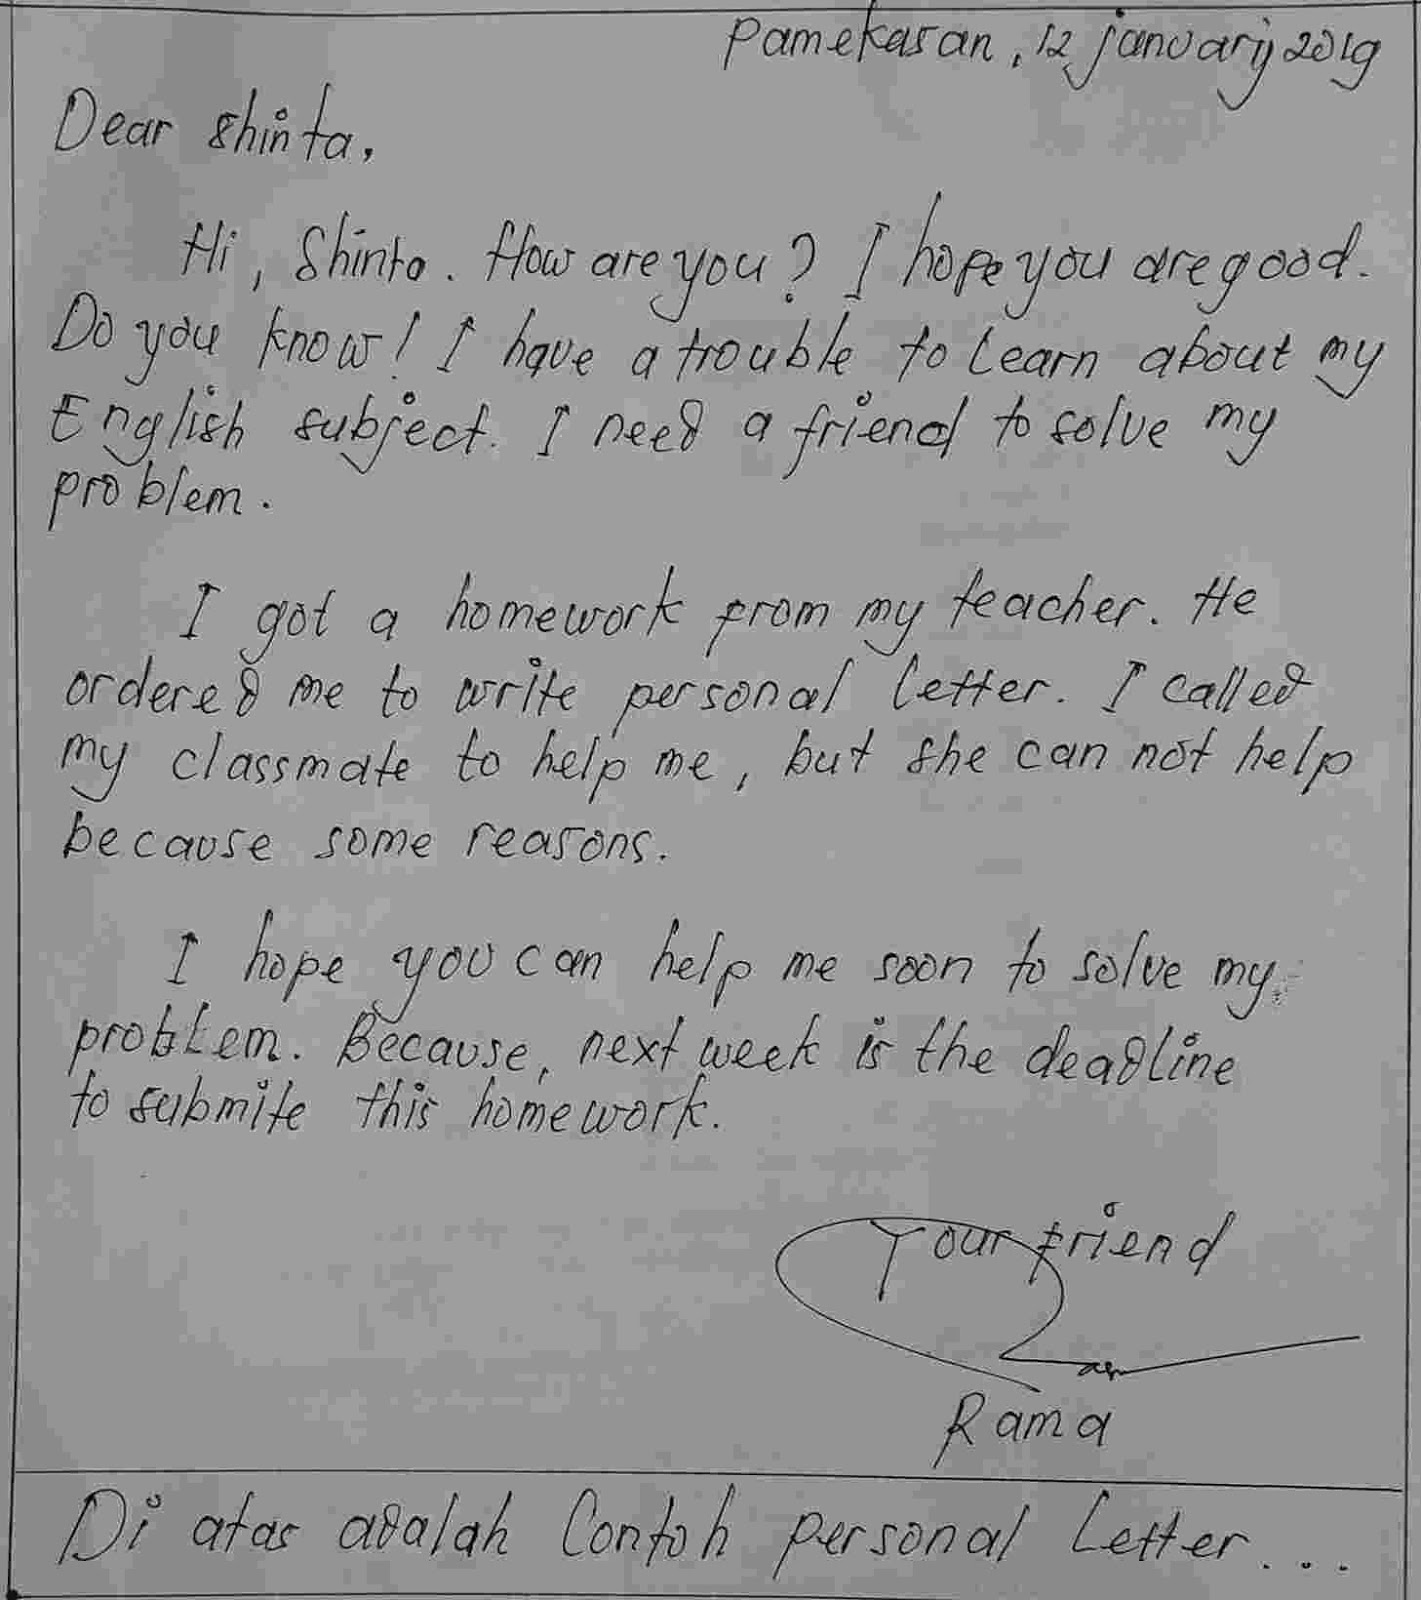 Pamekasan, 12 january 2019
Dear Shinta,
Hi, Shinta. How are you? I hope you are good.
Do you know! I have a trouble to learn about my
English subject. I need a friend to solve my
problem.
I got a homework from my teacher. He
ordered me to write personal letter. I called
my classmate to help me, but she can not help
because some reasons.
I hope you can help me soon to solve my
problem. Because, next week is the deadline
to submite this homework.
Your friend
Rama
Di atas adalah Contoh personal Letter...